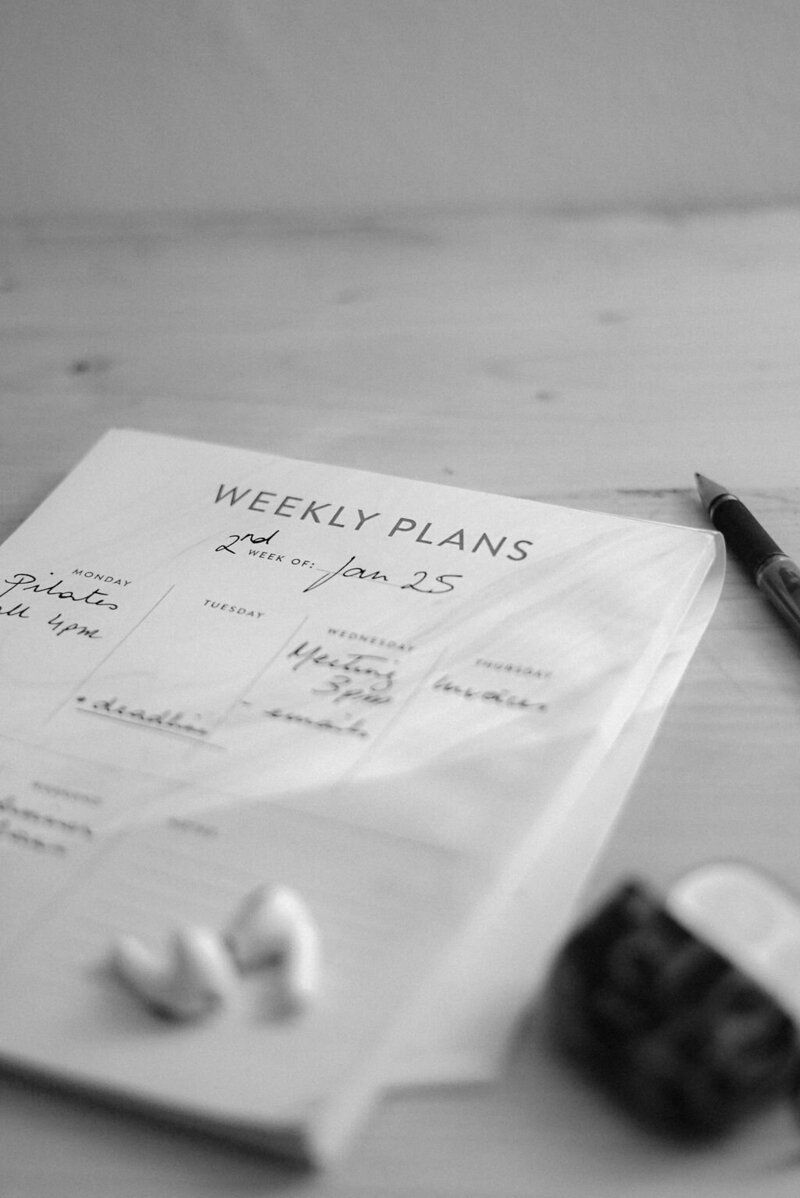 WEEKLY PLANS
2nd WEEK OF: Jan 25
MONDAY
Pilates
4pm
TUESDAY
• deadline
WEDNESDAY
Meeting
3pm
- emails
THURSDAY
Invoices